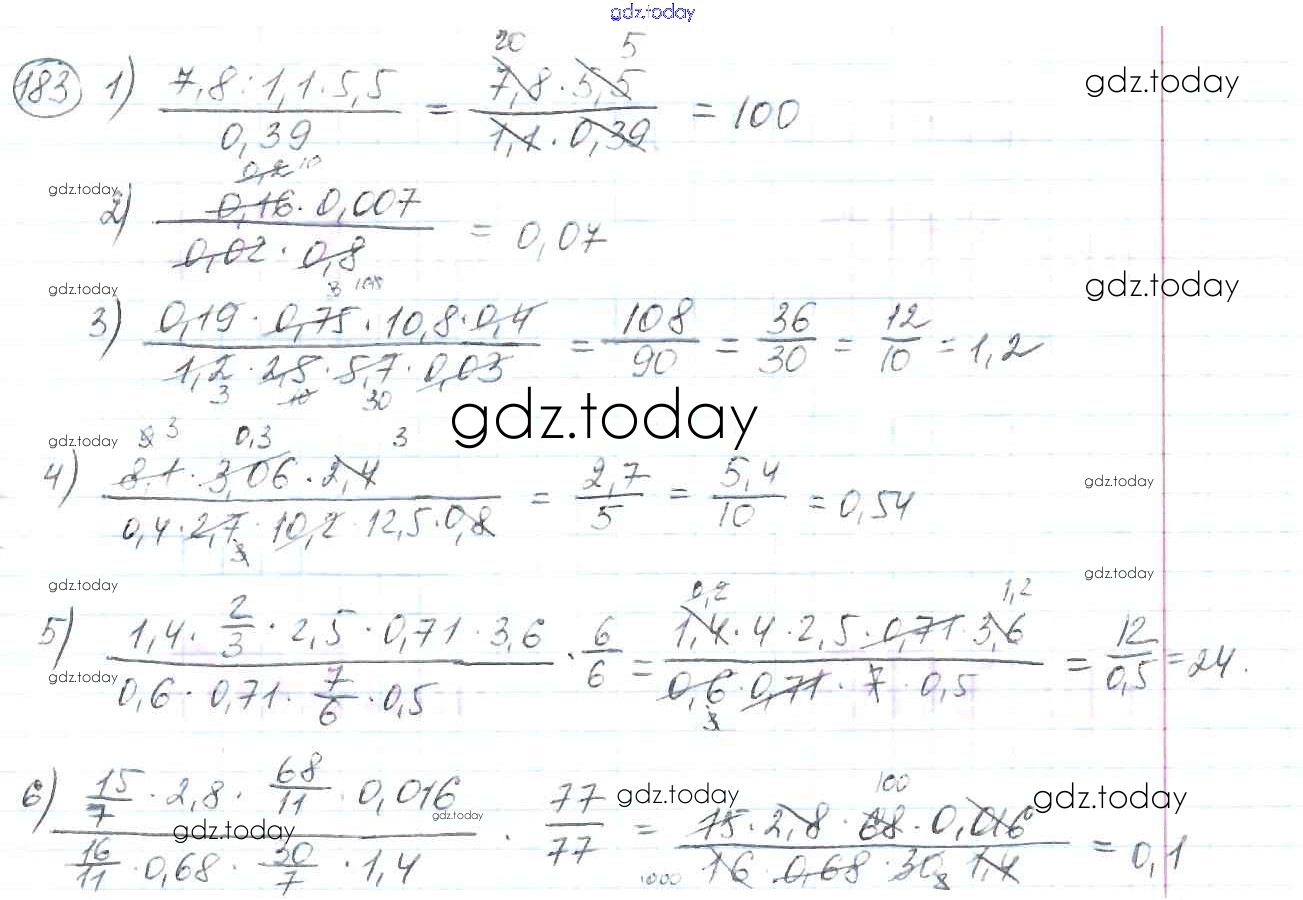 gdz.today
183 1) 7,8 : 1,1 · 5,5 / 0,39 = 7,8 · 5,5 / 1,1 · 0,39 = 100
20 5
gdz.today
2) 0,16 · 0,007 / 0,02 · 0,8 = 0,07
0,2 10
gdz.today
gdz.today
gdz.today
3) 0,19 · 0,75 · 10,8 · 0,4 / 1,2 · 2,5 · 5,7 · 0,03 = 108 / 90 = 36 / 30 = 12 / 10 = 1,2
3 108
3 10 30
gdz.today
gdz.today
4) 8,1 · 3,06 · 2,4 / 0,4 · 2,7 · 10,2 · 12,5 · 0,8 = 2,7 / 5 = 5,4 / 10 = 0,54
3 0,3 3
3
gdz.today
gdz.today
gdz.today
5) 1,4 · 2/3 · 2,5 · 0,71 · 3,6 / 0,6 · 0,71 · 7/6 · 0,5 · 6/6 = 1,4 · 4 · 2,5 · 0,71 · 3,6 / 0,6 · 0,71 · 7 · 0,5 = 12 / 0,5 = 24.
0,2 1,2
3
gdz.today
6) 15/7 · 2,8 · 68/11 · 0,016 / 16/11 · 0,68 · 30/7 · 1,4 · 77/77 = 15 · 2,8 · 68 · 0,016 / 16 · 0,68 · 30 · 1,4 = 0,1
100
1000
gdz.today
gdz.today
gdz.today
gdz.today